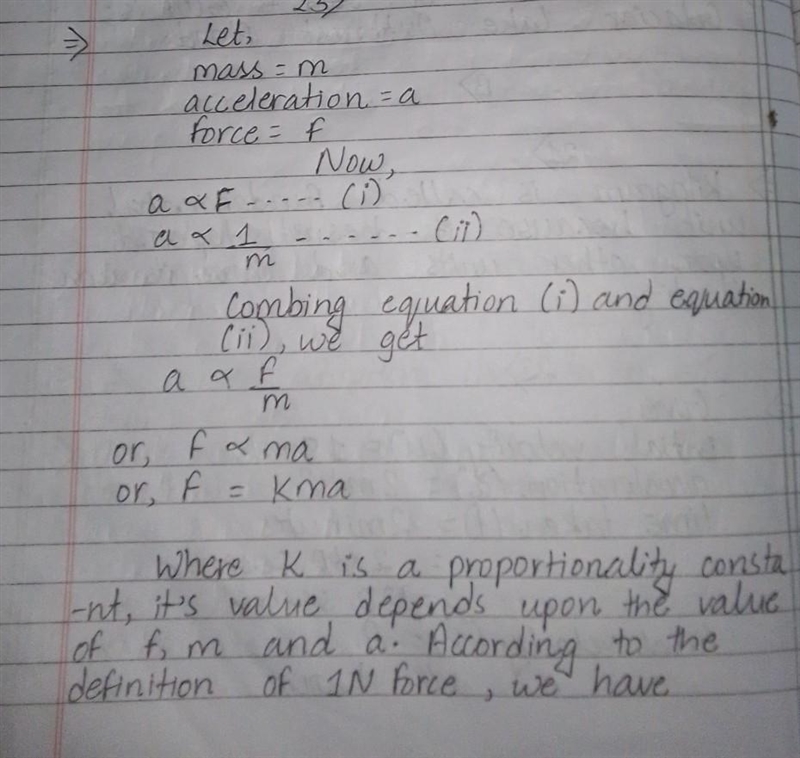 ⇒ Let,
mass = m
acceleration = a
force = f
Now,
a ∝ F ----- (i)
a ∝ 1/m ------ (ii)
Combing equation (i) and equation
(ii), we get
a ∝ f/m
or, f ∝ ma
or, f = Kma
Where K is a proportionality consta
-nt, it's value depends upon the value
of f, m and a. According to the
definition of 1N force, we have